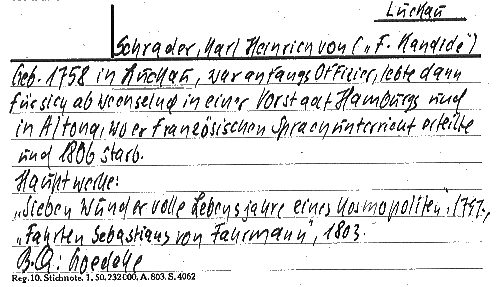 Luckau
Schrader, Karl Heinrich von („F. Kandide“)
Geb. 1758 in Luckau, war anfangs Offizier, lebte dann
für sich abwechselnd in einer Vorstadt Hamburgs und
in Altona, wo er französischen Sprachunterricht erteilte
und 1806 starb.
Hauptwerke:
„Sieben wundervolle Lebensjahre eines Kosmopoliten“,
„Fahrten Sebastians von Fahrmann“, 1803.
B.Q.: Goedeke
Reg. 10. Stichnote. 1. 50. 232000. A. 803. S. 4062